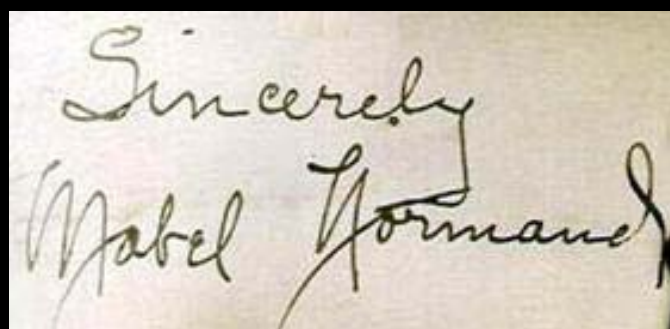 Sincerely
Mabel Normand